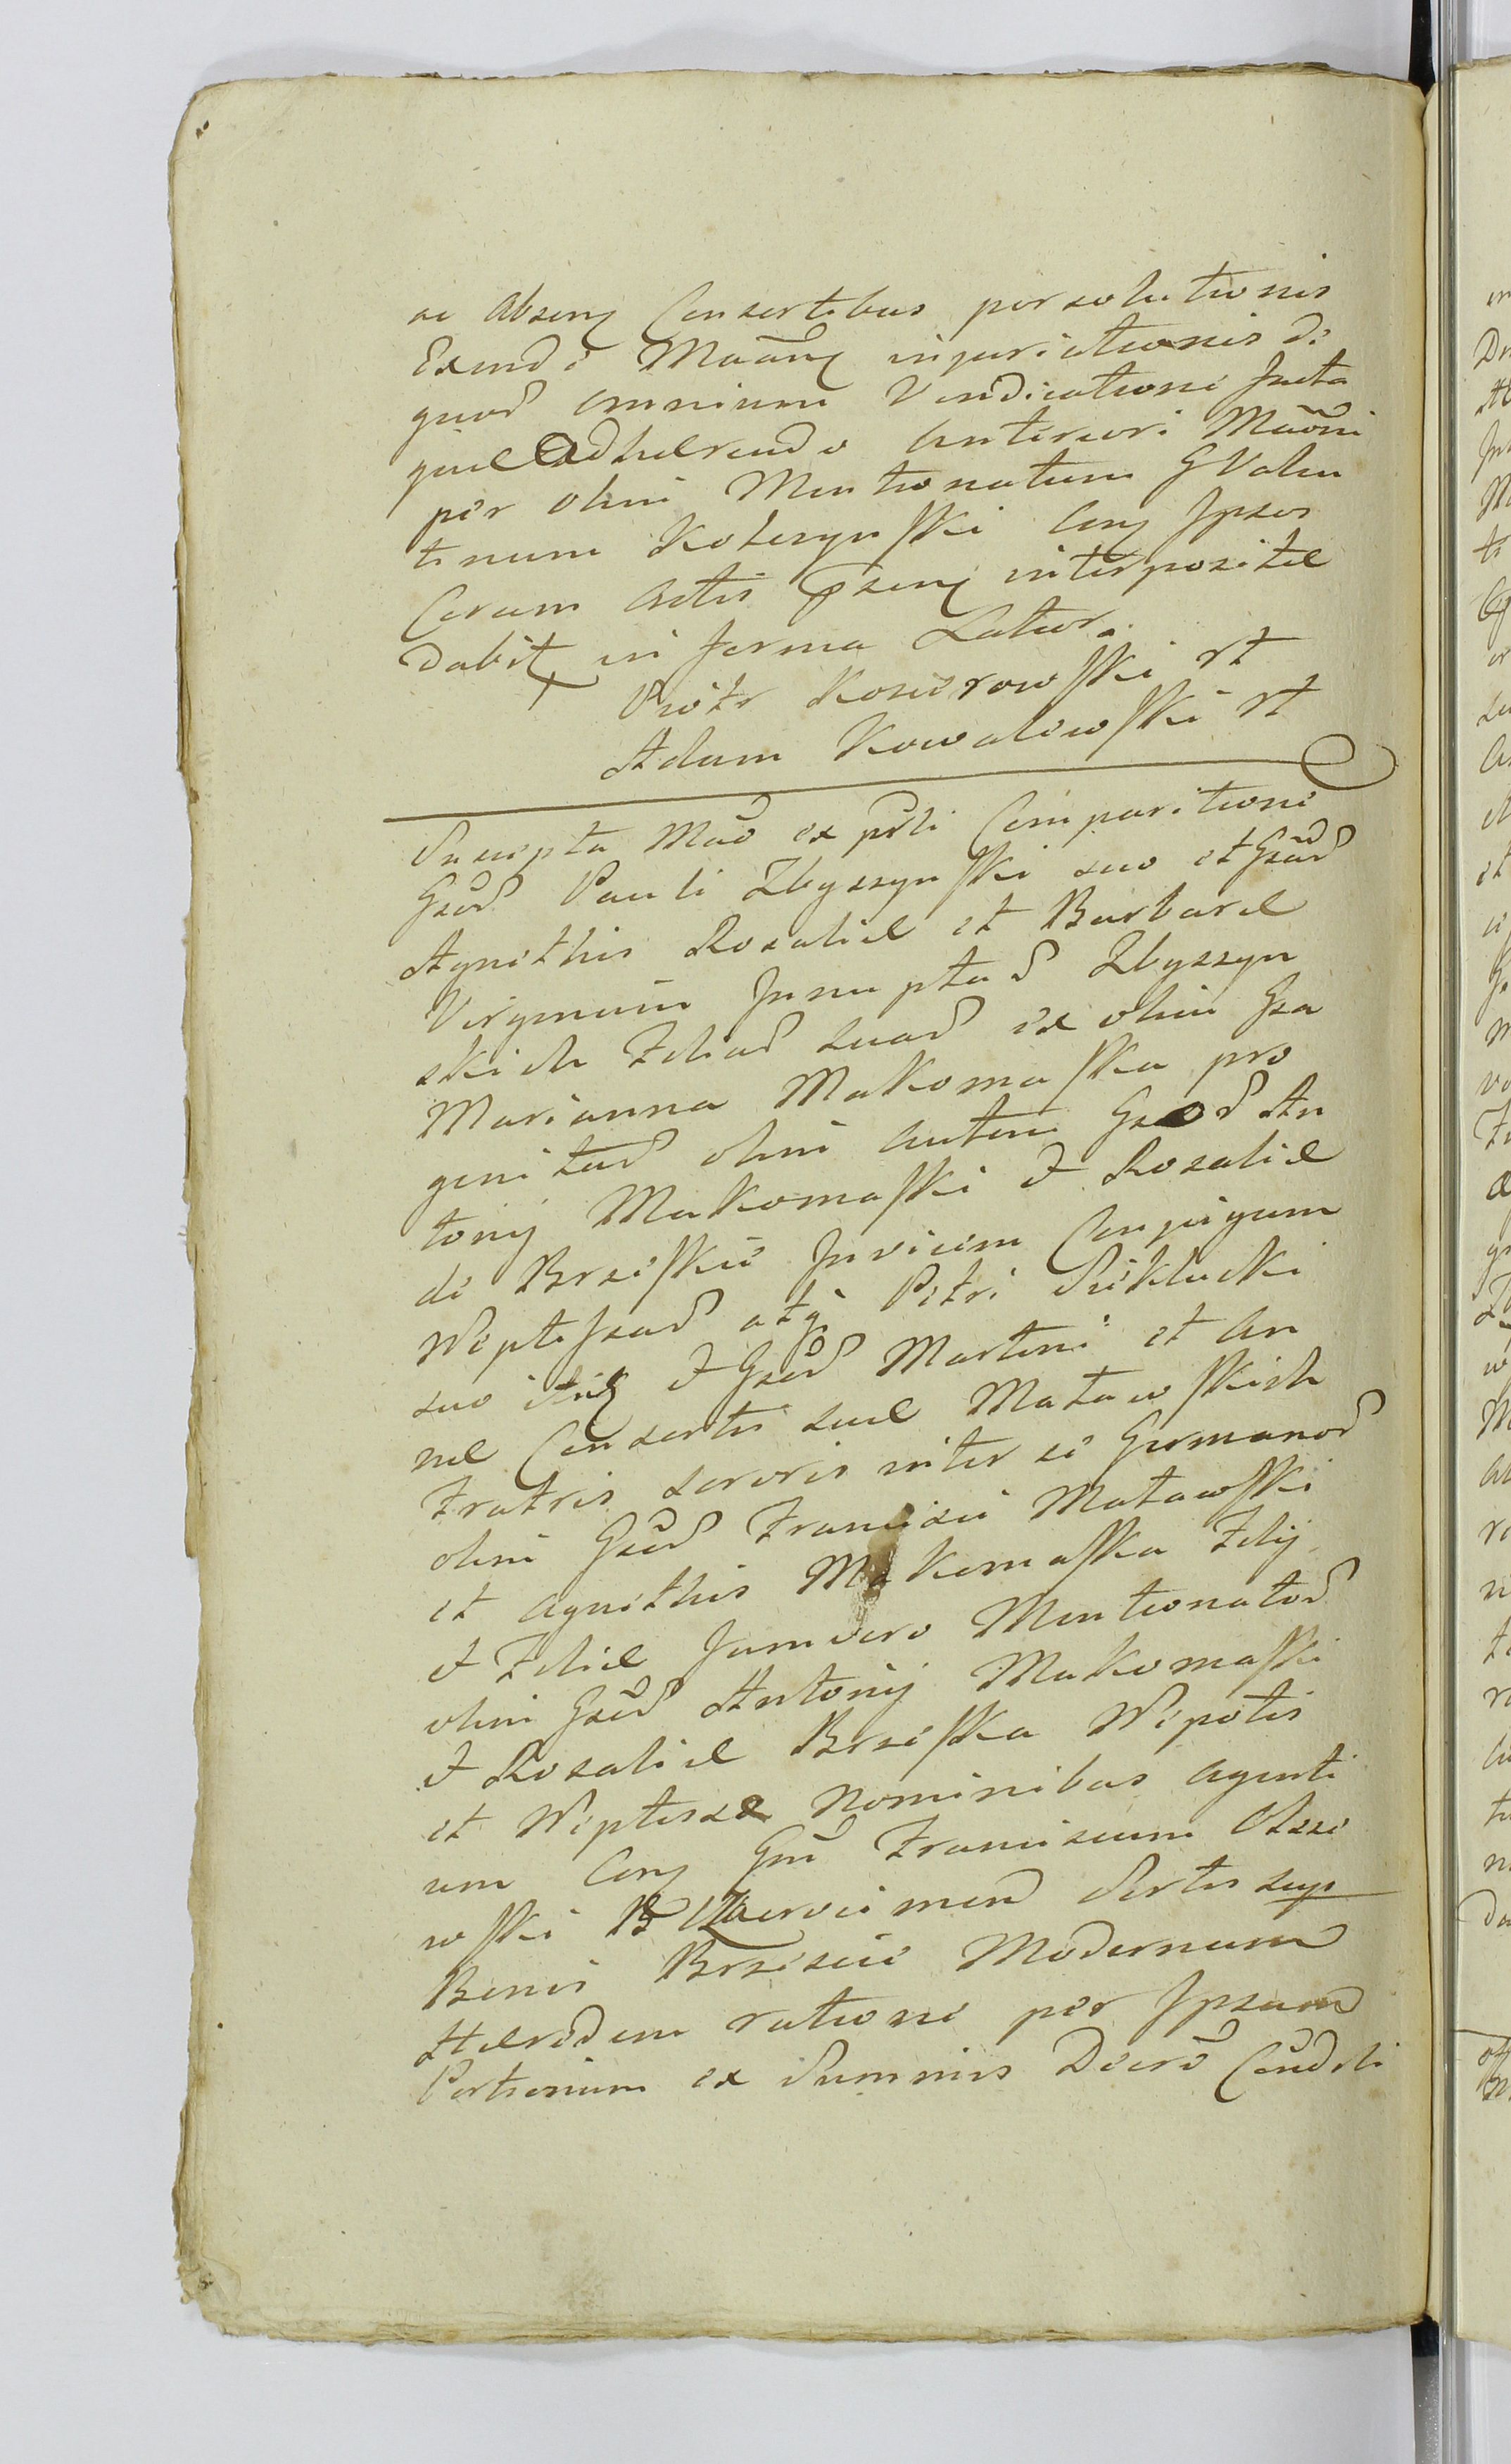 ac absenq Consortibus persolutionis
Exinde Maãnq injuriationis de
quod omnium Vendicatione facta
quae adhaerendo anteriori Maõni
per olim Mentionatum G Valen
tinum Kotarynski Cenq Ipsos
Coram Actis psenq interpositae
Dabit in forma Latior.
Piotr Kosiorowski rt
Adam Kowalewski rt
Suscepta Maõ ex psti Comparitione
Gsod Pauli Zbyszynski suo et Gsad
Agnethis Rosaliae et Barbarae
Virginum Innuptad Zbyszyn
skich Filiad suad ex olim Gsa
Marianna Makomaska pro
genitad olim autem Gsod An
tonij Makomaski & Rosaliae
de Brzeskie Invicem Conjugum
Neptessad atq Petri Sieklucki
suo & Gsod Martini et An
nae Consortis suae Matawskich
Fratris sororis inter se Germanod
olim Gsod Francisci Matawski
et Agnethis Makomaska Filij
& Filiae Jamvero Mentionatod
olim Gsod Antonij Makomaski
& Rosaliae Brzeska Nepotis
et Neptissae Nominibus agenti
um Cenq Gm Franciscum Olsze
wski B Sortis sup
Bonis Brzescie Modernum
Haeredem ratione per Ipsam
Portionum ex Summis Decre Condsti